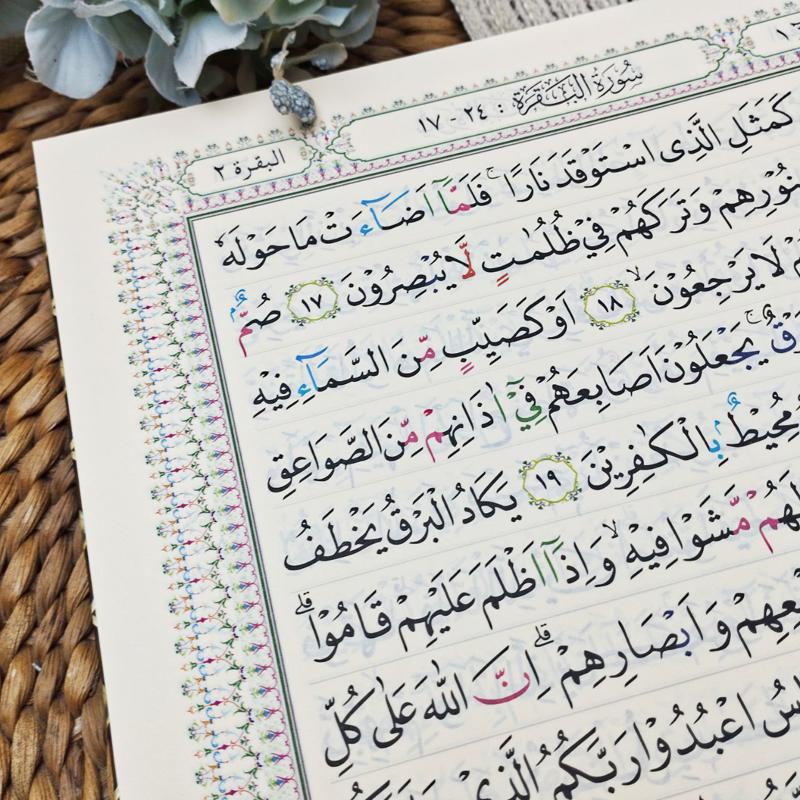 سُورَةُ الْبَقَرَة : ٢٤ - ١٧
البقرة ٢
كَمَثَلِ الَّذِى اسْتَوْقَدَ نَارًا ۚ فَلَمَّآ اَضَآءَتْ مَا حَوْلَهٗ
بِنُوْرِهِمْ وَتَرَكَهُمْ فِيْ ظُلُمٰتٍ لَّا يُبْصِرُوْنَ ١٧ صُمٌّۢ
لَا يَرْجِعُوْنَ ۙ ١٨ اَوْ كَصَيِّبٍ مِّنَ السَّمَآءِ فِيْهِ
يَجْعَلُوْنَ اَصَابِعَهُمْ فِيْٓ اٰذَانِهِمْ مِّنَ الصَّوَاعِقِ
مُحِيْطٌۢ بِالْكٰفِرِيْنَ ١٩ يَكَادُ الْبَرْقُ يَخْطَفُ
لَهُمْ مَّشَوْا فِيْهِ ۙ وَاِذَآ اَظْلَمَ عَلَيْهِمْ قَامُوْا ۗ
وَاَبْصَارِهِمْ ۗ اِنَّ اللّٰهَ عَلٰى كُلِّ
اعْبُدُوْا رَبَّكُمُ الَّذِيْ